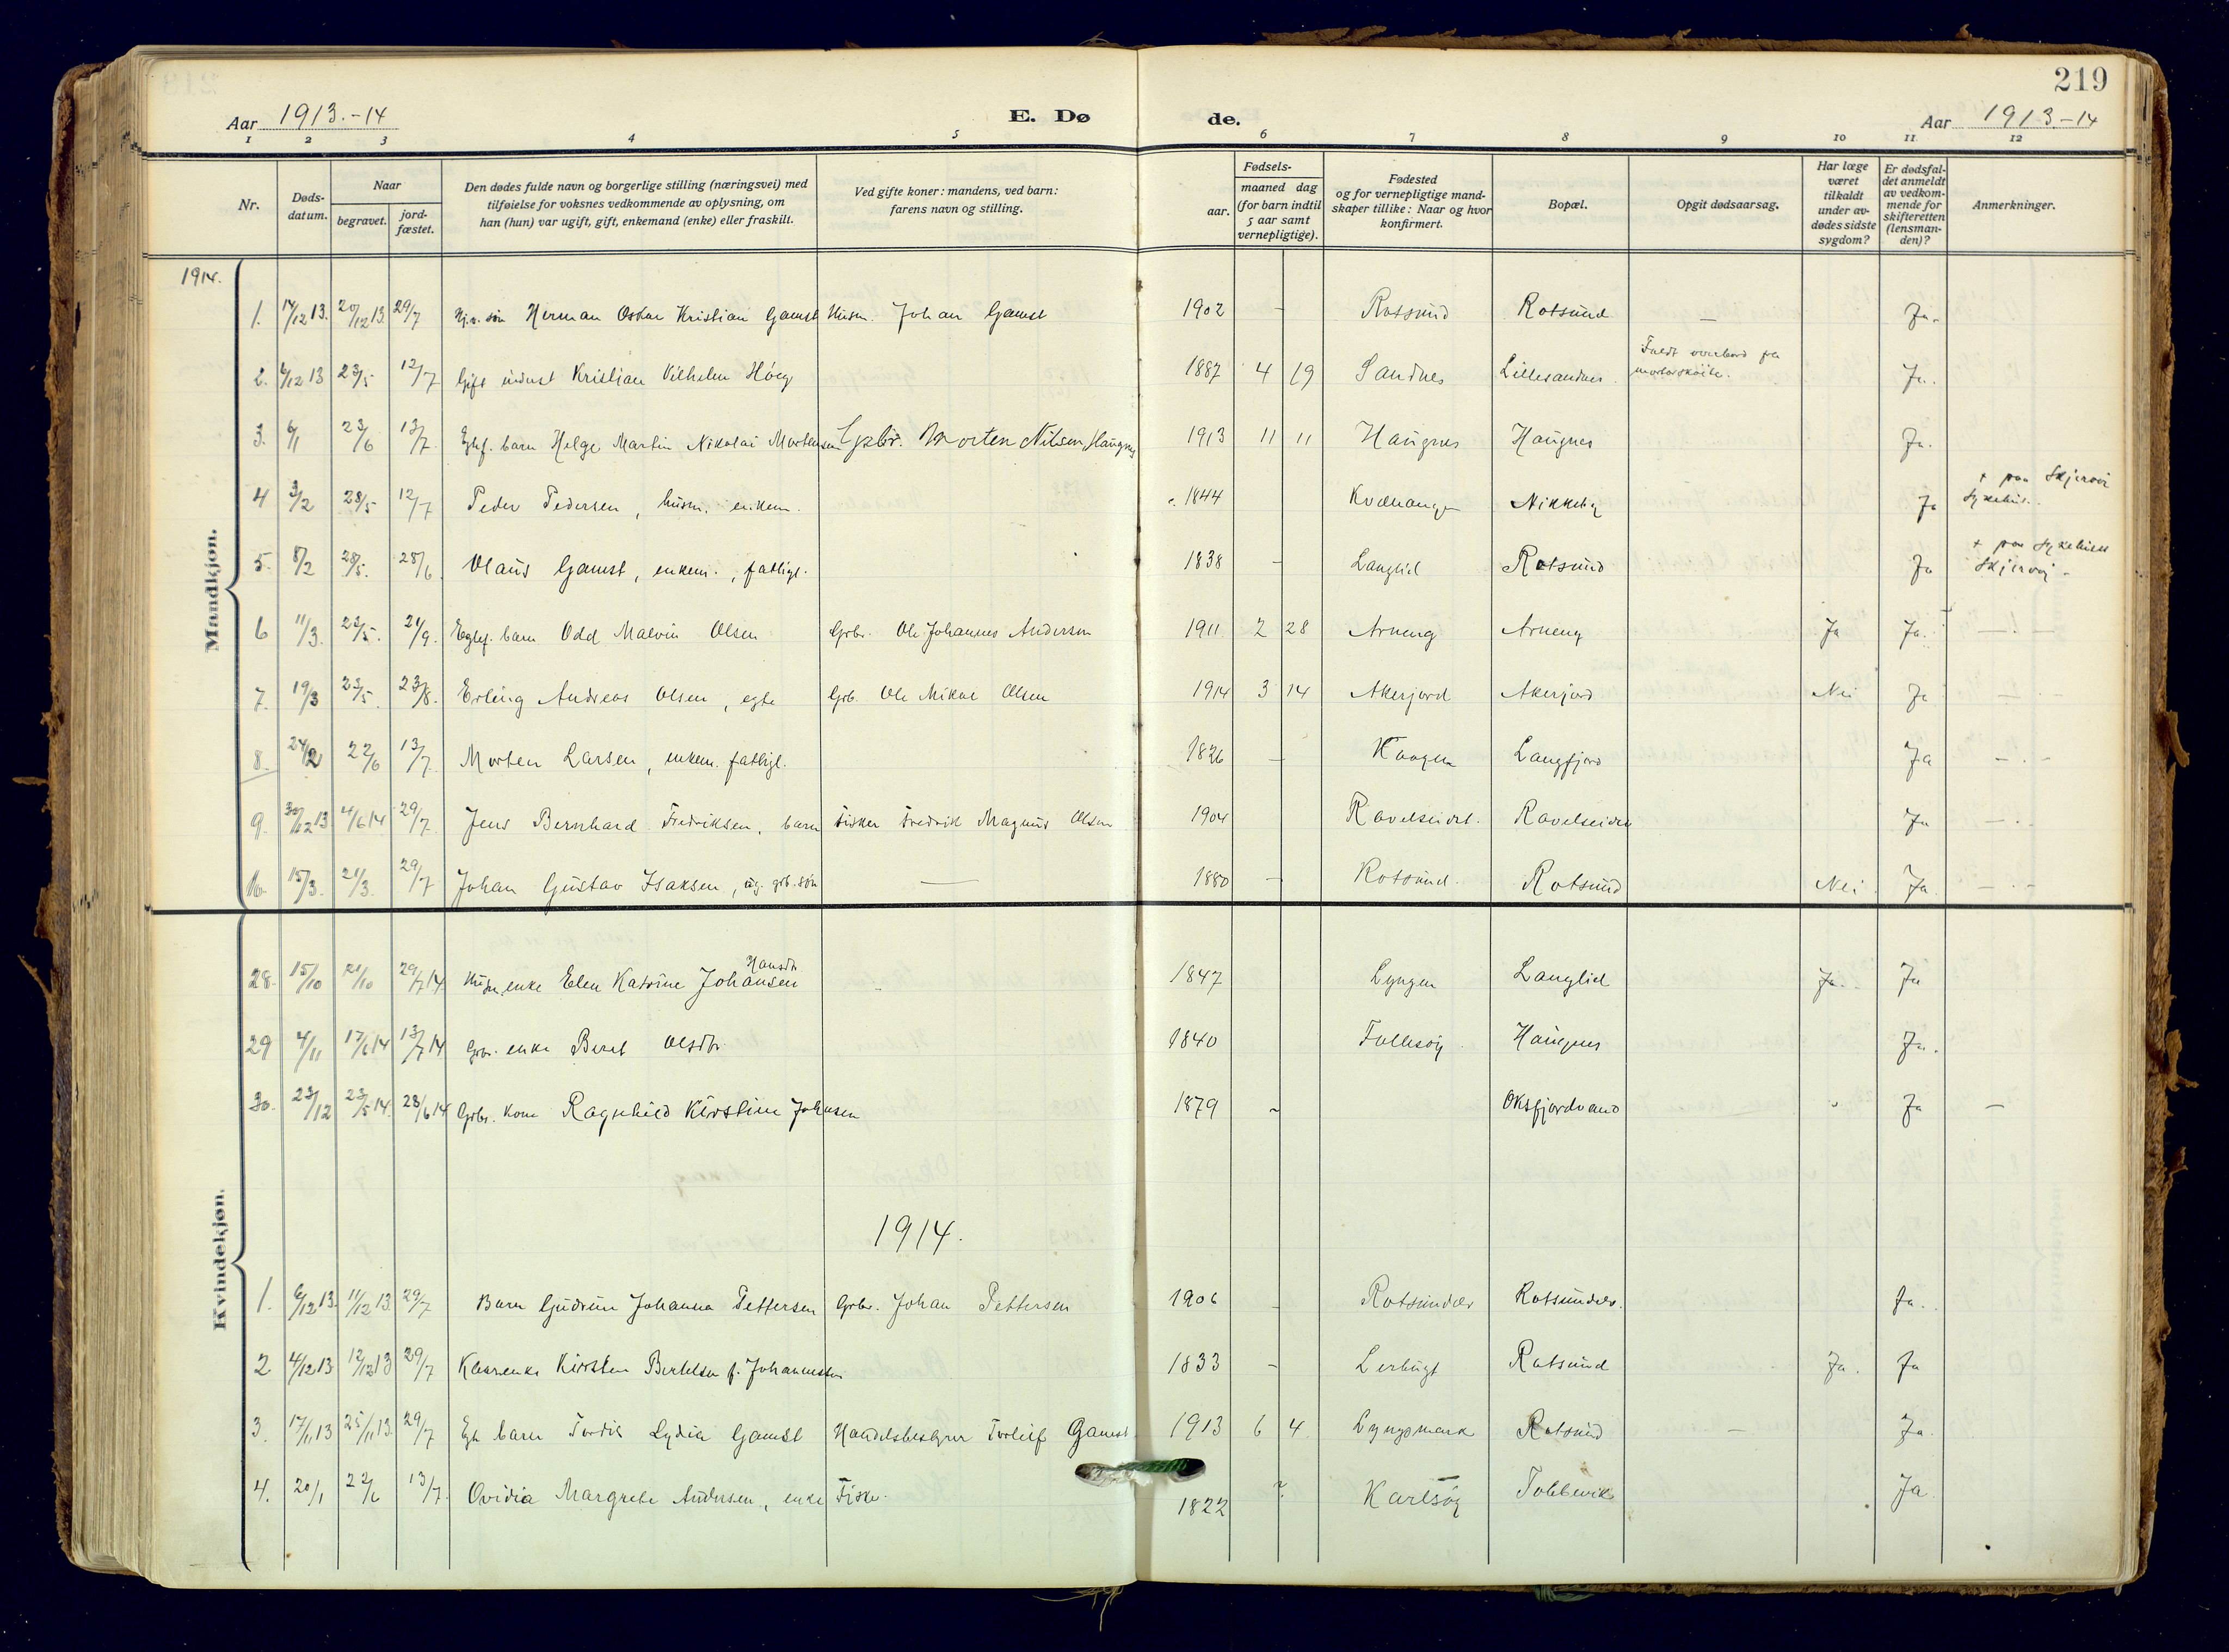 219
Aar 1913.-14 E. Dø de. Aar 1913-14
1 2 3 4 5 6 7 8 9 10 11 12
Nr.
Døds-
datum.
Naar
begravet.
jord-
fæstet.
Den dødes fulde navn og borgerlige stilling (næringsvei) med
tilføielse for voksnes vedkommende av oplysning, om
han (hun) var ugift, gift, enkemand (enke) eller fraskilt.
Ved gifte koner: mandens, ved barn:
farens navn og stilling.
Fødsels-
aar.
maaned dag
(for barn indtil
5 aar samt
vernepligtige).
Fødested
og for vernepligtige mand-
skaper tillike: Naar og hvor
konfirmert.
Bopæl.
Opgit dødsaarsag.
Har læge
været
tilkaldt
under av-
dødes sidste
sygdom?
Er dødsfal-
det anmeldt
av vedkom-
mende for
skifteretten
(lensman-
den)?
Anmerkninger.
Mandkjøn.
1914.
1. 14/12 13. 20/12 13. 29/7 søn Herman Oskar Kristian Gamst Husm. Johan Gamst 1902 - Rotsund Rotsund - Ja.
2. 6/12 13 23/5 12/7 Gift Kristian Vilhelm Høeg 1887 4 19 Sandnes Lillesandnes. Faldt overbord fra Ja.
motorskøite.
3. 6/1 23/6 13/7. Egtef. barn Helge Martin Nikolai Mortensen Gzbr. Morten Nilsen, Haugnes 1913 11 11 Haugnes Haugnes Ja.
4 3/2 28/5 12/7 Peder Pedersen, husm. enkem. 1844 Kvænangen Nikkeby Ja + paa Skjervøi
Sykehus.
5. 8/2 28/5. 28/6. Olaus Gamst, enkem., fattigl. 1838 - Langlid Rotsund Ja + paa Sykehuset
Skjervøi -
6 11/3. 23/5. 21/9. Egtef. barn Odd Malvin Olsen Grbr. Ole Johannes Andersen 1911 2 28 Arneng Arneng Ja Ja. - . -
7. 19/3 23/5. 23/8. Erling Andreas Olsen, egte Grb. Ole Mikal Olsen 1914 3 14 Akerjord Akerjord Nei Ja - . -
8. 24/2 22/6 13/7. Morten Larsen, enkem. fattigl. 1826 - Kaagen Langfjord Ja - . -
9. 30/12 13 4/6 14 29/7. Jens Bernhard Fredriksen, barn Fisker Fredrik Magnus Olsen 1904 Ravelseidet. Ravelseidet Ja - . -
10. 15/3. 21/3. 29/7 Johan Gustav Isaksen, ug. grb. søn — 1880 - Rotsund. Rotsund Nei. Ja - . -
Kvindekjøn.
Hansdtr
28. 15/10 21/10 29/7 14 Husm. enke Elen Katrine Johansen 1847 Lyngen Langlid Ja. Ja
29 4/11 17/6 14 13/7 14 Grbr. enke Beret Olsdtr. 1840 Follesøy Haugnes Ja.
30. 23/12 23/5 14. 28/6 14 Grbr. kone Ragnhild Kirstine Johnsen 1879 - Oksfjordvand Ja -
1914.
1. 6/12 13. 11/12 13. 29/7 Barn Gudrun Johanna Pettersen Grbr. Johan Pettersen 1906 - Rotsundelv Rotsundelv. Ja.
2 4/12 13 12/12 13 29/7 Kaarenke Kirsten Bertelsen f. Johannesen 1833 - Lerbugt Rotsund Ja. Ja
3. 17/11 13 25/11 13. 29/7 Egt. barn Tordis Lydia Gamst Handelsbestyrer Torleif Gamst 1913 6 4 Lyngsmark Rotsund - Ja.
4. 20/1 22/6 13/7. Ovidia Margrete Andersen, enke Fisker. 1822 ? Karlsøy Tobbevik Ja.